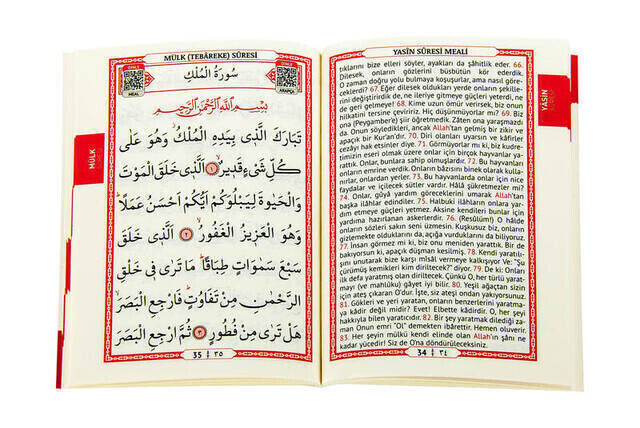 YASİN SÛRESİ MEALİ
tıklarını bize elleri söyler, ayakları da şâhitlik eder. 66.
Dilesek, onların gözlerini büsbütün kör ederdik.
O zaman doğru yolu bulmaya koşuşurlar, ama nasıl göre-
ceklerdi? 67. Eğer dilesek oldukları yerde onların şekille-
rini değiştirirdik de, ne ileriye gitmeye güçleri yeterdi, ne
de geri gelmeye! 68. Kime uzun ömür verirsek, biz onun
hilkatini tersine çeviririz. Hiç düşünmüyorlar mı? 69. Biz
ona (Peygamber'e) şiir öğretmedik. Zâten ona yaraşmazdı
da. Onun söyledikleri, ancak Allah'tan gelmiş bir zikir ve
apaçık bir Kur'an'dır. 70. Diri olanları uyarsın ve kâfirler
cezayı hak etsinler diye. 71. Görmüyorlar mı ki, biz kudre-
timizin eseri olmak üzere onlar için birçok hayvanlar ya-
rattık. Onlar, bunlara sahip olmuşlardır. 72. Bu hayvanları
onların emrine verdik. Onların bâzısını binek olarak kulla-
nırlar, 73. Bu hayvanlarda onlar için nice
faydalar ve içilecek sütler vardır. Hâlâ şükretmezler mi?
74. Onlar, gûyâ yardım göreceklerini umarak Allah'tan
başka ilâhlar edindiler. 75. Halbuki ilâhların onlara yar-
dım etmeye güçleri yetmez. Aksine kendileri bunlar için
yardıma hazırlanan askerlerdir. 76. (Resûlüm!) O hâlde
onların sözleri sakın seni üzmesin. Kuşkusuz biz, onların
gizlemekte olduklarını da, açığa vurduklarını da biliyoruz.
77. İnsan görmez mi ki, biz onu meniden yarattık. Bir de
bakıyorsun ki, apaçık düşman kesilmiş. 78. Kendi yaratılı-
şını unutarak bize karşı misâl vermeye kalkışıyor Ve: "Şu
çürümüş kemikleri kim diriltecek?" diyor. 79. De ki: Onları
ilk defa yaratmış olan diriltecek. Çünkü O, her türlü yarat-
mayı (ve mahlûku) gâyet iyi bilir. 80. Yeşil ağaçtan sizin
için ateş çıkaran O'dur. İşte, siz ateşi ondan yakıyorsunuz.
81. Gökleri ve yeri yaratan, onların benzerlerini yaratma-
ya kâdir değil midir? Evet! Elbette kâdirdir. O, her şeyi
hakkıyla bilen yaratıcıdır. 82. Bir şey yaratmak dilediği za-
man Onun emri "Ol" demekten ibârettir. Hemen oluverir.
83. Her şeyin mülkü kendi elinde olan Allah'ın şânı ne
kadar yücedir! Siz de O'na döndürüleceksiniz.
34 | ٣٤
YÂSÎN
MÜLK (TEBÂREKE) SÛRESİ
سُورَةُ الْمُلْكِ
MEAL
ARAPÇA
بِسْمِ اللّٰهِ الرَّحْمٰنِ الرَّحِيمِ
تَبَارَكَ الَّذٖى بِيَدِهِ الْمُلْكُ وَهُوَ عَلٰى
كُلِّ شَىْءٍ قَدٖيرٌ ١ اَلَّذٖى خَلَقَ الْمَوْتَ
وَالْحَيٰوةَ لِيَبْلُوَكُمْ اَيُّكُمْ اَحْسَنُ عَمَلًا
وَهُوَ الْعَزٖيزُ الْغَفُورُ ٢ اَلَّذٖى خَلَقَ
سَبْعَ سَمٰوَاتٍ طِبَاقًا مَا تَرٰى فٖى خَلْقِ
الرَّحْمٰنِ مِنْ تَفَاوُتٍ فَارْجِعِ الْبَصَرَ
هَلْ تَرٰى مِنْ فُطُورٍ ٣ ثُمَّ ارْجِعِ الْبَصَرَ
35 | ٣٥
MÜLK